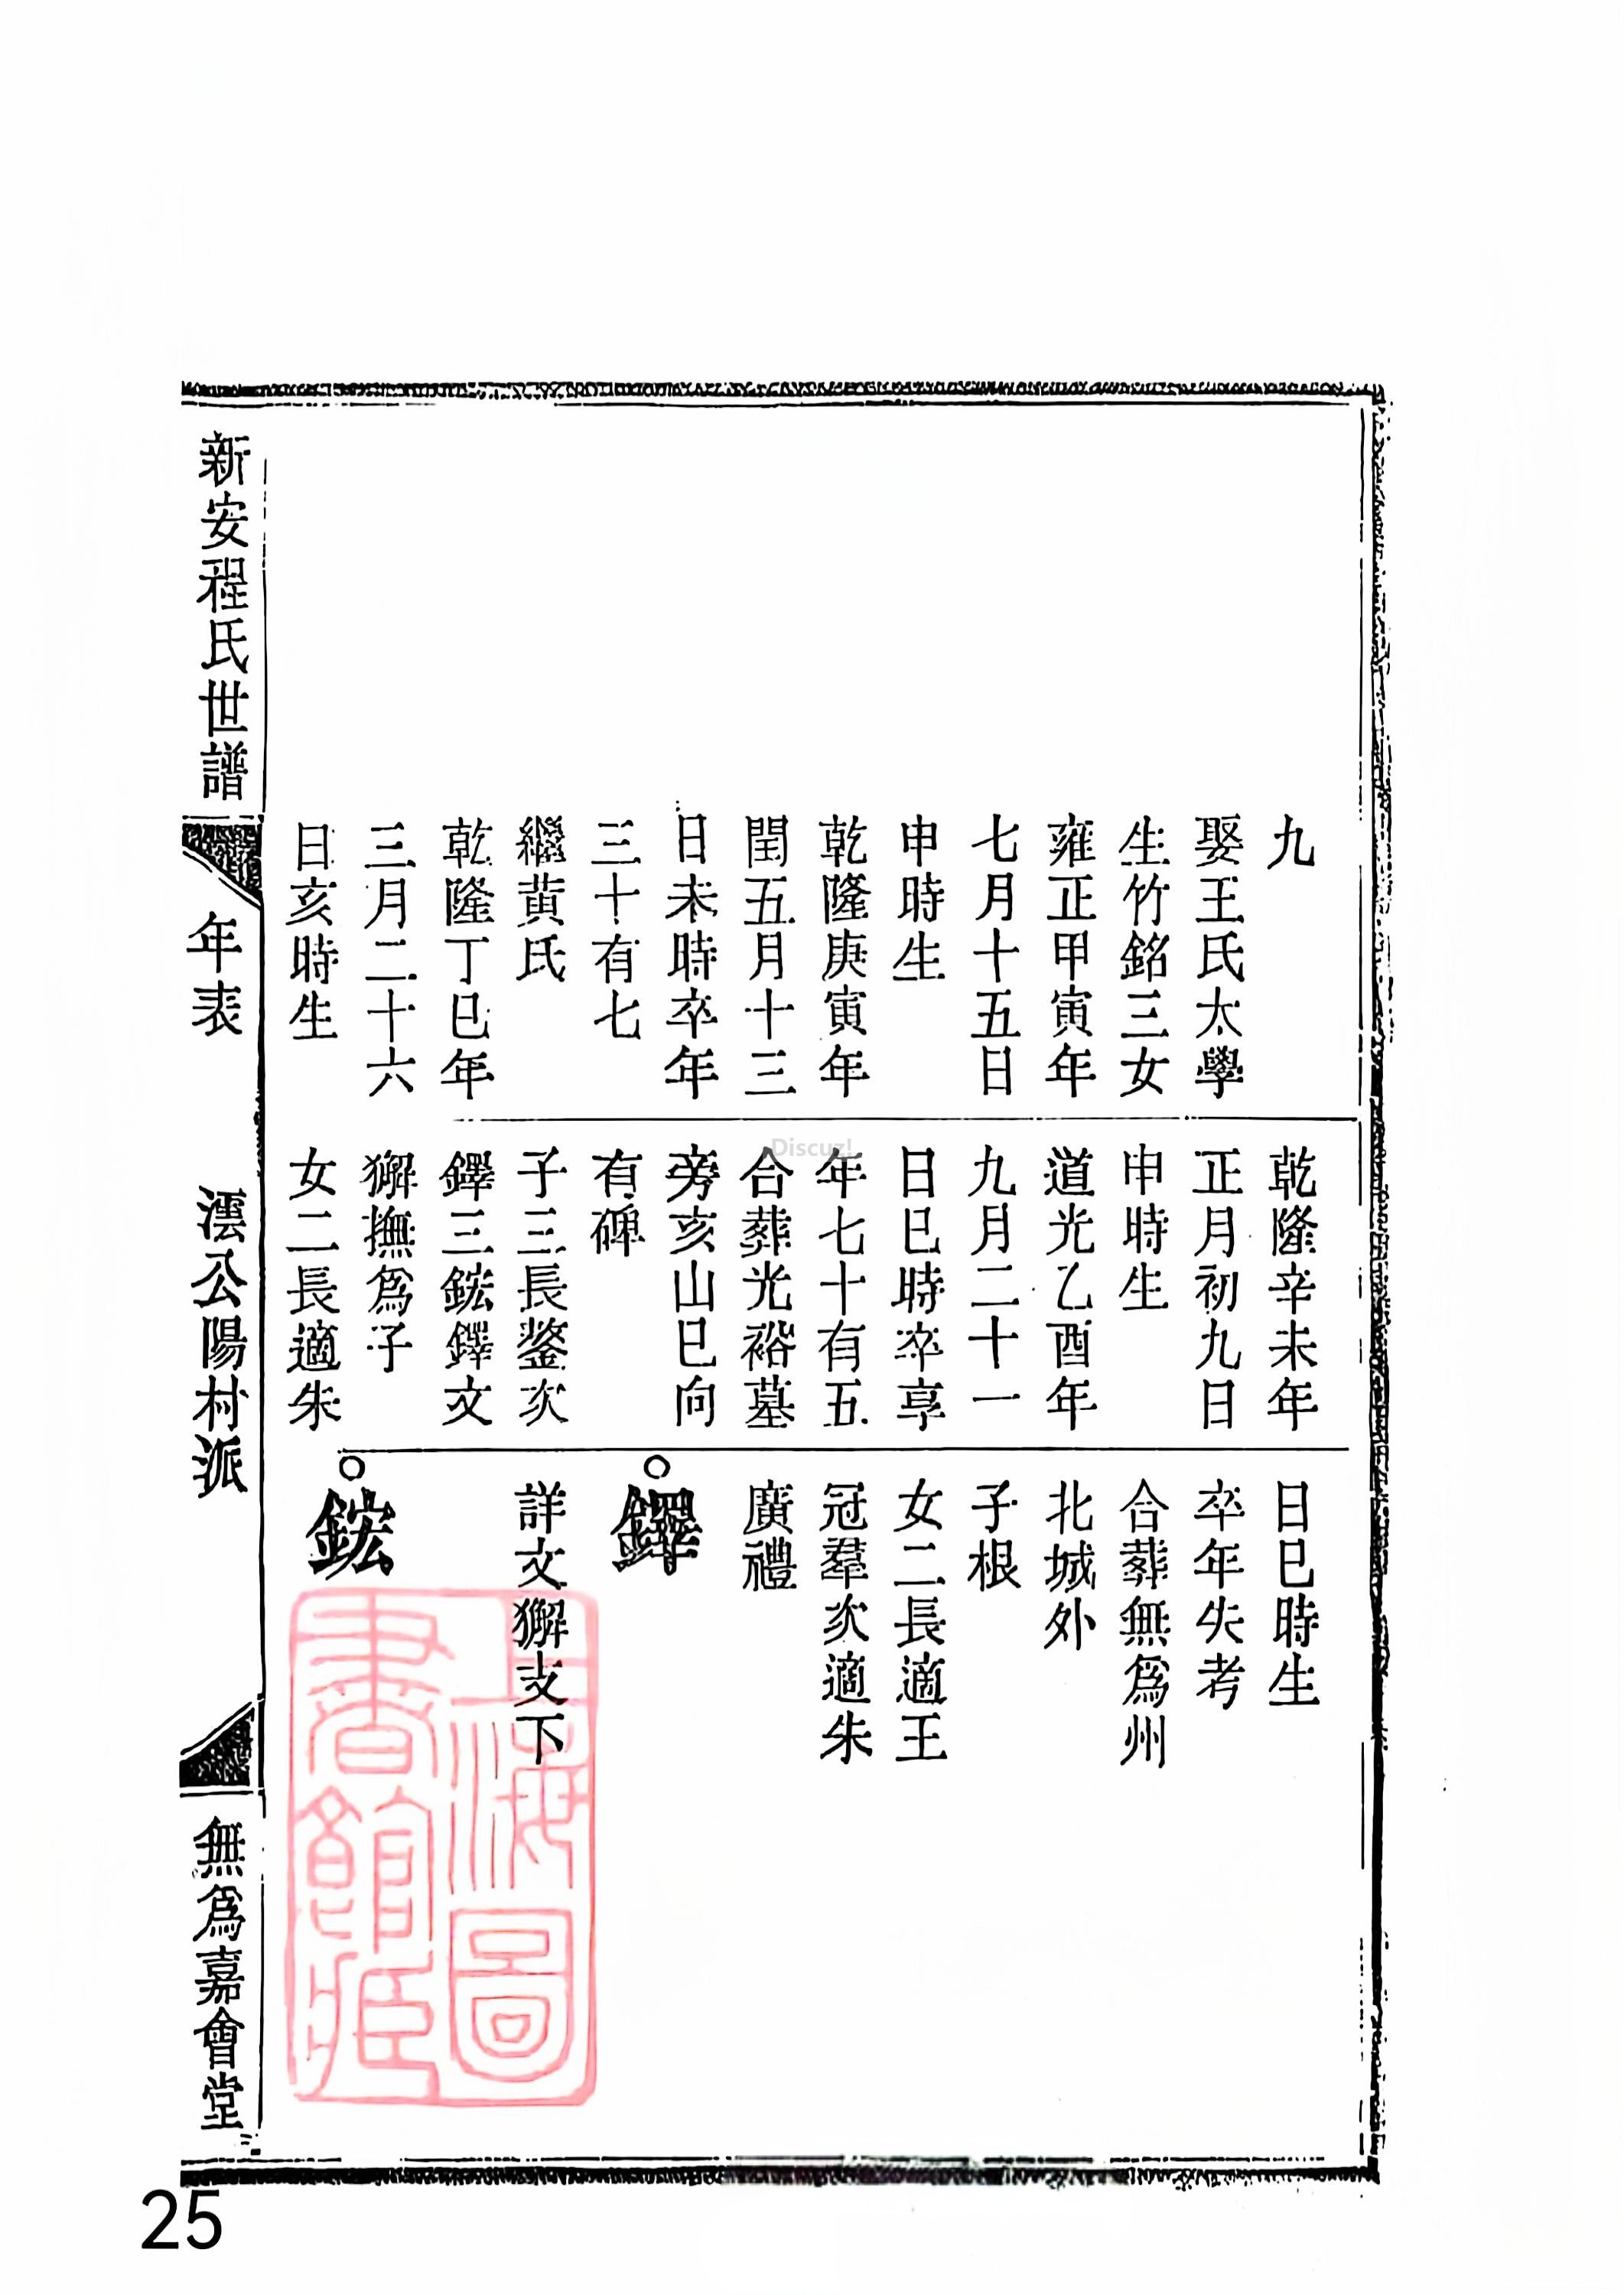 九
娶王氏太學
生竹銘三女
雍正甲寅年
七月十五日
申時生
乾隆庚寅年
閏五月十三
日未時卒年
三十有七
繼黄氏
乾隆丁巳年
三月二十六
日亥時生
乾隆辛未年
正月初九日
申時生
道光乙酉年
九月二十一
日巳時卒享
年七十有五
合葬光裕墓
旁亥山巳向
有碑
子三長鏊次
鐸三鋐鐸文
獬撫爲子
女二長適朱
日巳時生
卒年失考
合葬無爲州
北城外
子根
女二長適王
冠羣次適朱
廣禮
鐸
詳文獬支下
鋐
新安程氏世譜
年表
澐公陽村派
無爲嘉會堂
上海圖書館藏
Discuz!
25